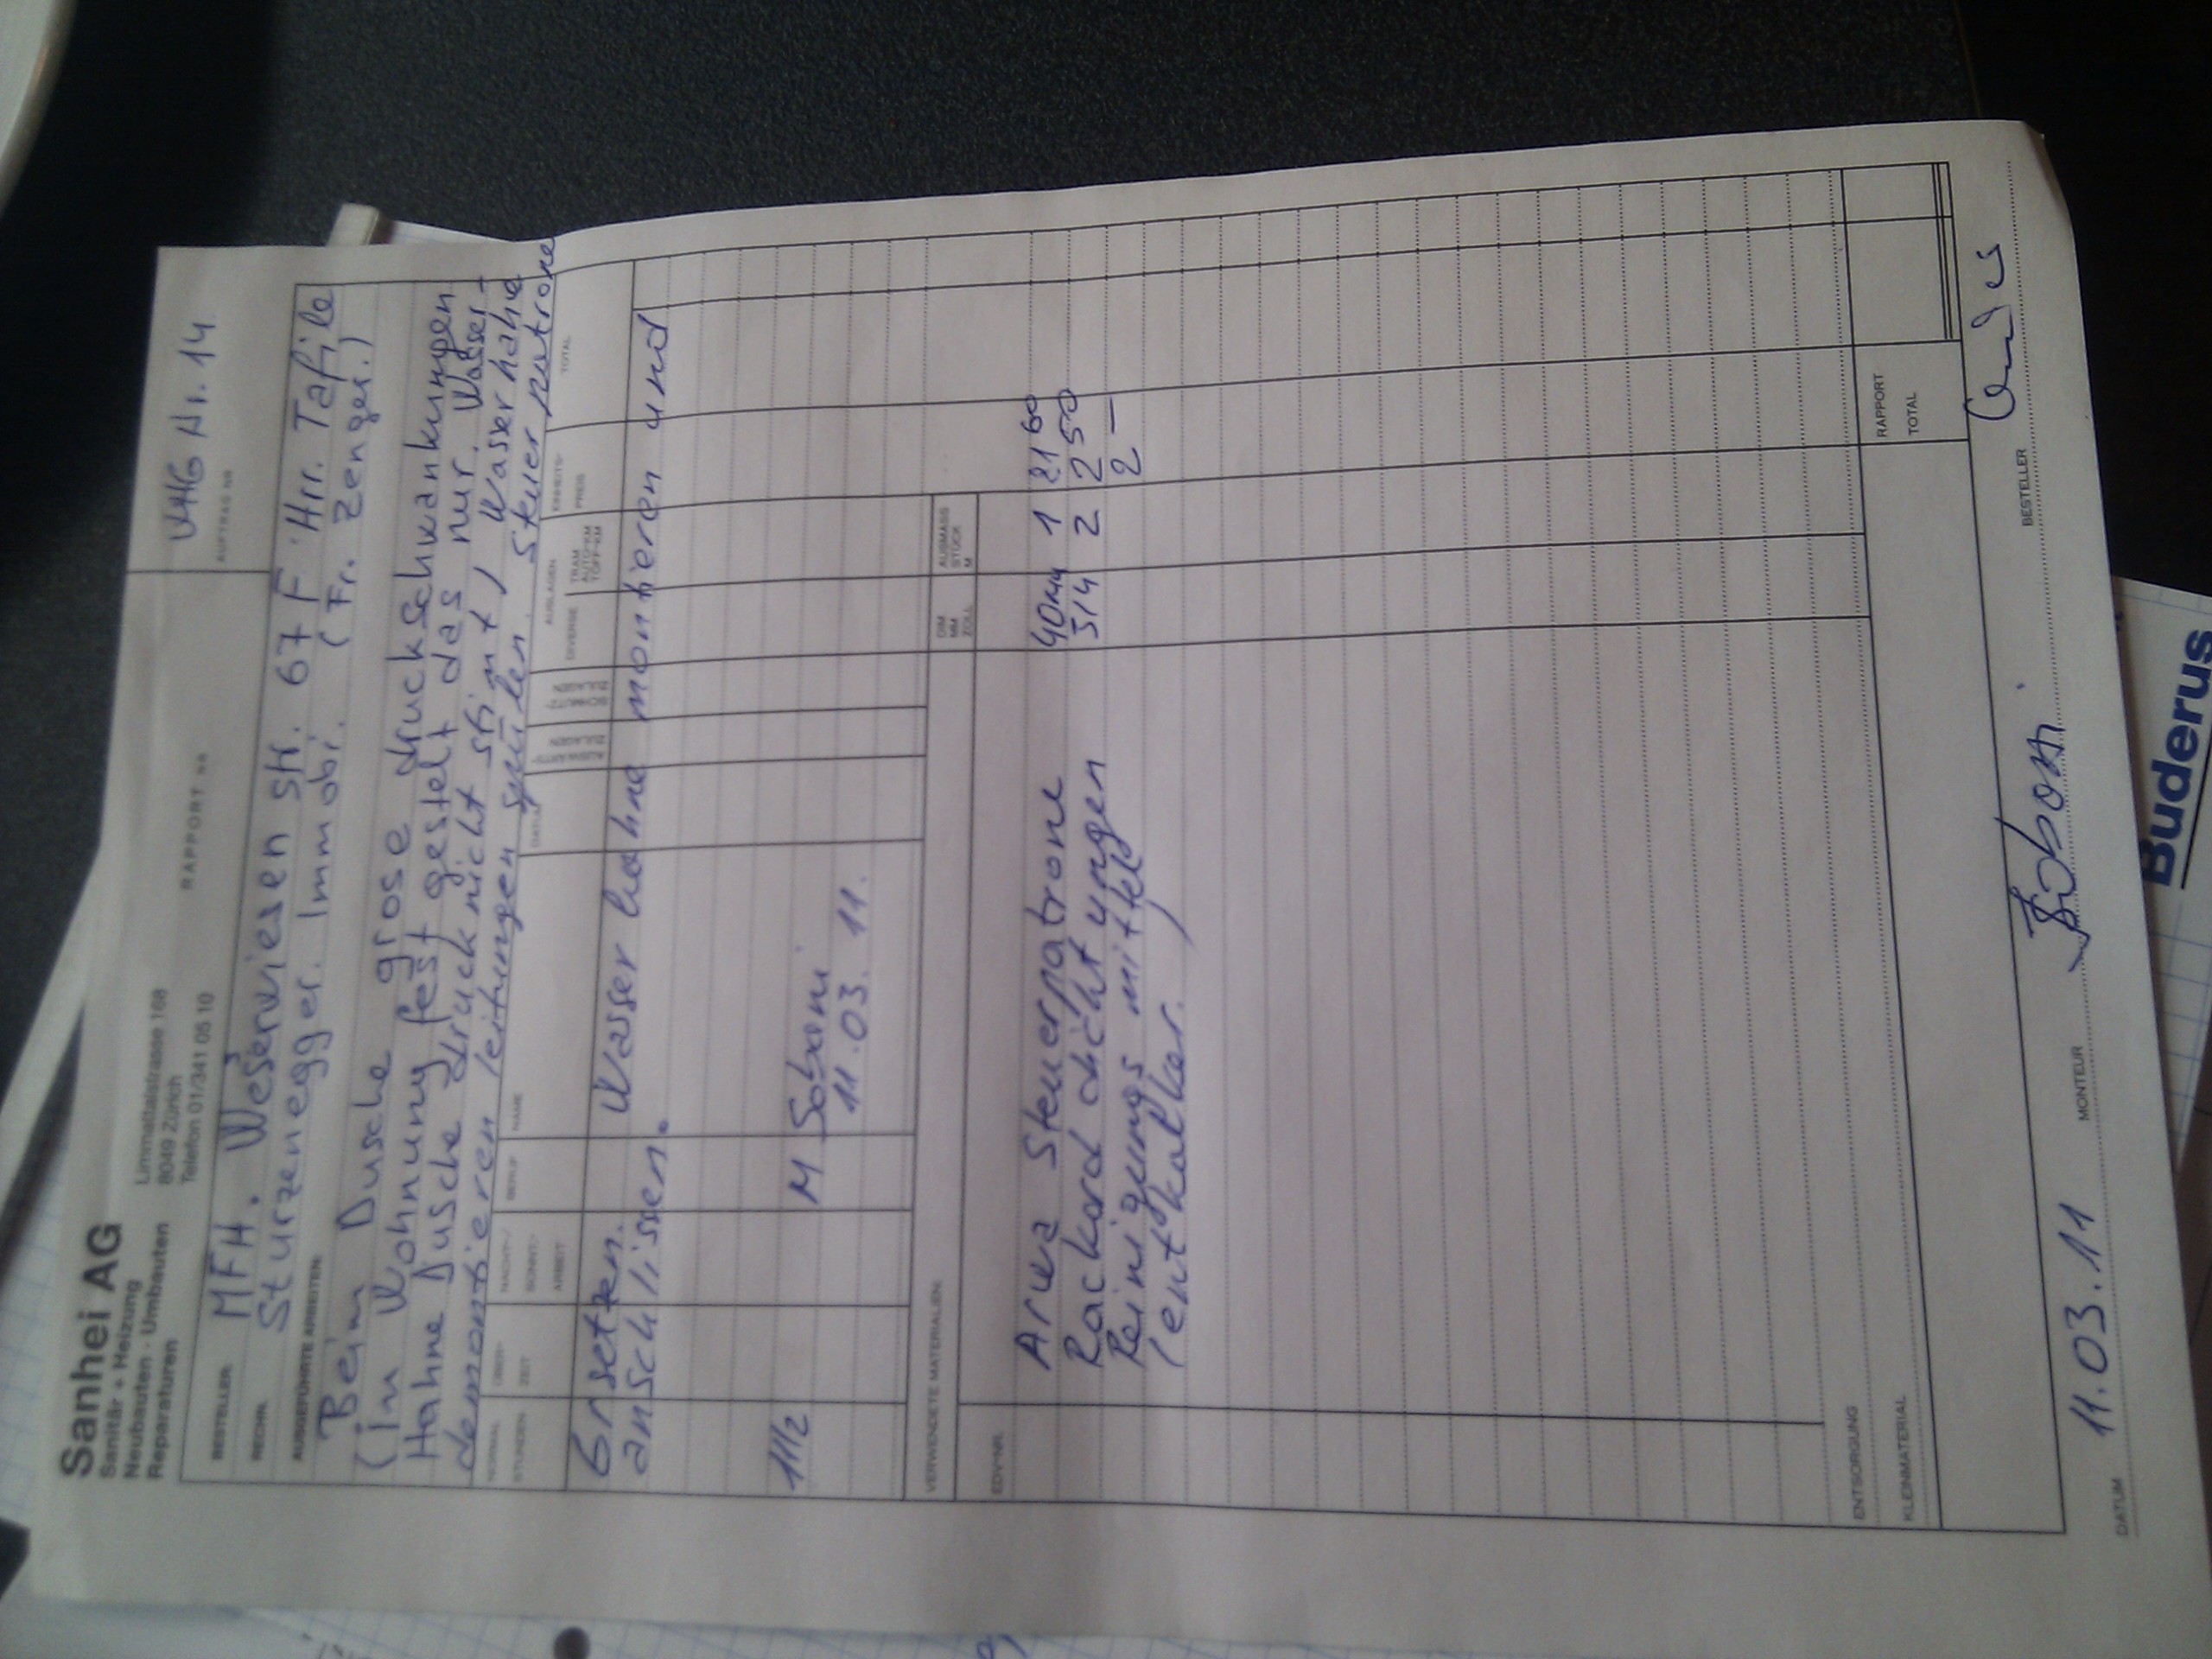 Sanhei AG
Sanitär + Heizung
Neubauten - Umbauten
Reparaturen
Limmattalstrasse 168
8049 Zürich
Telefon 01/341 05 10
RAPPORT NR
WHG Nr. 14
AUFTRAG NR
BESTELLER: MFH. Weserwiesen str. 67 F Hrr. Tafile
RECHN. Sturzenegger. Immobi. (Fr. Zenger.)
AUSGEFÜHRTE ARBEITEN:
Beim Dusche grose druckschwankungen
(in Wohnung fest gestelt das nur. Wasser-
Hahne Dusche druck nicht stimt) Wasserhahne
demontieren leitungen spülen. Steuerpatrone
NORMAL STUNDEN
ÜBER- ZEIT
NACHT-/ SONNT-/ ARBEIT
BERUF
NAME
DATUM
AUSWÄRTS- ZULAGEN
SCHMUTZ- ZULAGEN
AUSLAGEN
DIVERSE
TRAM AUTO-KM TÖFF-KM
EINHEITS- PREIS
TOTAL
Ersetzen. Wasser hahne montieren und
anschlissen.
1 1/2 M Saboni
11.03.11.
VERWENDETE MATERIALIEN:
EDV-NR.
DIM MM ZOLL
AUSMASS STÜCK M
Arwa Steuerpatrone 40mm 1 21 60
Rackord dichtungen 3/4 2 2 50
Reinigungs mittel 2 —
(entkalker.)
ENTSORGUNG
KLEINMATERIAL
RAPPORT
TOTAL
DATUM 11.03.11 MONTEUR BESTELLER
Buderus